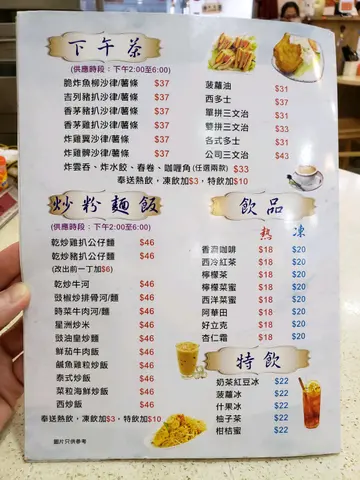 下午茶
(供應時段：下午2:00至6:00)
脆炸魚柳沙律/薯條 $37
吉列豬扒沙律/薯條 $37
香茅豬扒沙律/薯條 $37
香茅雞扒沙律/薯條 $37
炸雞翼沙律/薯條 $37
炸雞髀沙律/薯條 $37
炸雲吞、炸水餃、春卷、咖喱角(任選兩款) $33
奉送熱飲，凍飲加$3，特飲加$10
菠蘿油 $31
西多士 $31
單拼三文治 $31
雙拼三文治 $33
各式多士 $31
公司三文治 $43
炒粉麵飯
(供應時段：下午2:00至6:00)
乾炒雞扒公仔麵 $46
乾炒豬扒公仔麵 $46
(改出前一丁加$6)
乾炒牛河 $46
豉椒炒排骨河/麵 $46
時菜牛肉河/麵 $46
星洲炒米 $46
豉油皇炒麵 $46
鮮茄牛肉飯 $46
鹹魚雞粒炒飯 $46
泰式炒飯 $46
菜粒海鮮炒飯 $46
西炒飯 $46
奉送熱飲，凍飲加$3，特飲加$10
圖片只供參考
飲品
熱 凍
香濃咖啡 $18 $20
西冷紅茶 $18 $20
檸檬茶 $18 $20
檸檬菜蜜 $18 $20
西洋菜蜜 $18 $20
阿華田 $18 $20
好立克 $18 $20
杏仁霜 $18 $20
特飲
奶茶紅豆冰 $22
菠蘿冰 $22
什果冰 $22
柚子茶 $22
柑桔蜜 $22